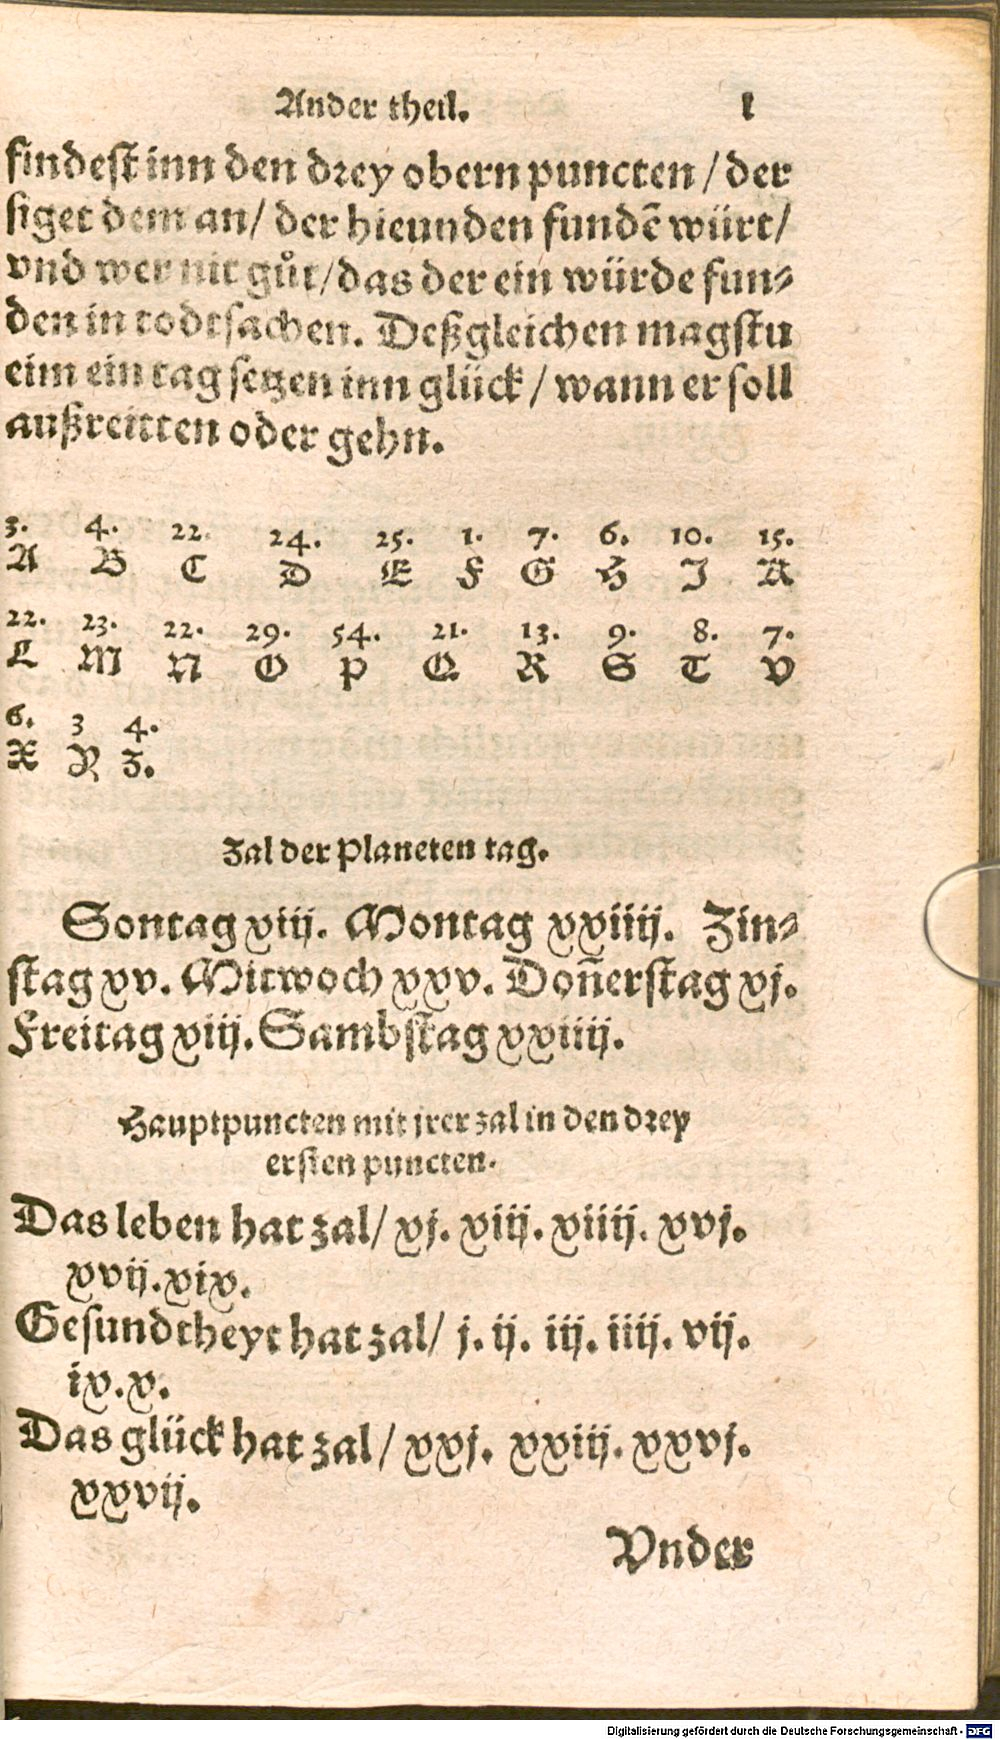 Ander theil. l
findest inn den drey obern puncten / der
siget dem an / der hieunden fundē würt /
vnd wer nit gůt / das der ein würde fun⸗
den in todtsachen. Deßgleichen magstu
eim ein tag setzen inn glück / wann er soll
außreitten oder gehn.
3. 4. 22. 24. 25. 1. 7. 6. 10. 15.
A B C D E F G H J K
22. 23. 22. 29. 54. 21. 13. 9. 8. 7.
L M N O P Q R S T V
6. 3 4.
X Y Z.
Zal der Planeten tag.
Sontag xiij. Montag xxiiij. Zin⸗
stag xv. Mitwoch xxv. Don̄erstag xj.
Freitag xiij. Sambstag xxiiij.
Hauptpuncten mit jrer zal in den drey
ersten puncten.
Das leben hat zal / xj. xiij. xiiij. xvj.
xvij. xix.
Gesundtheyt hat zal / j. ij. iij. iiij. vij.
ix. x.
Das glück hat zal / xxj. xxiij. xxvj.
xxvij.
Vnder
Digitalisierung gefördert durch die Deutsche Forschungsgemeinschaft - DFG